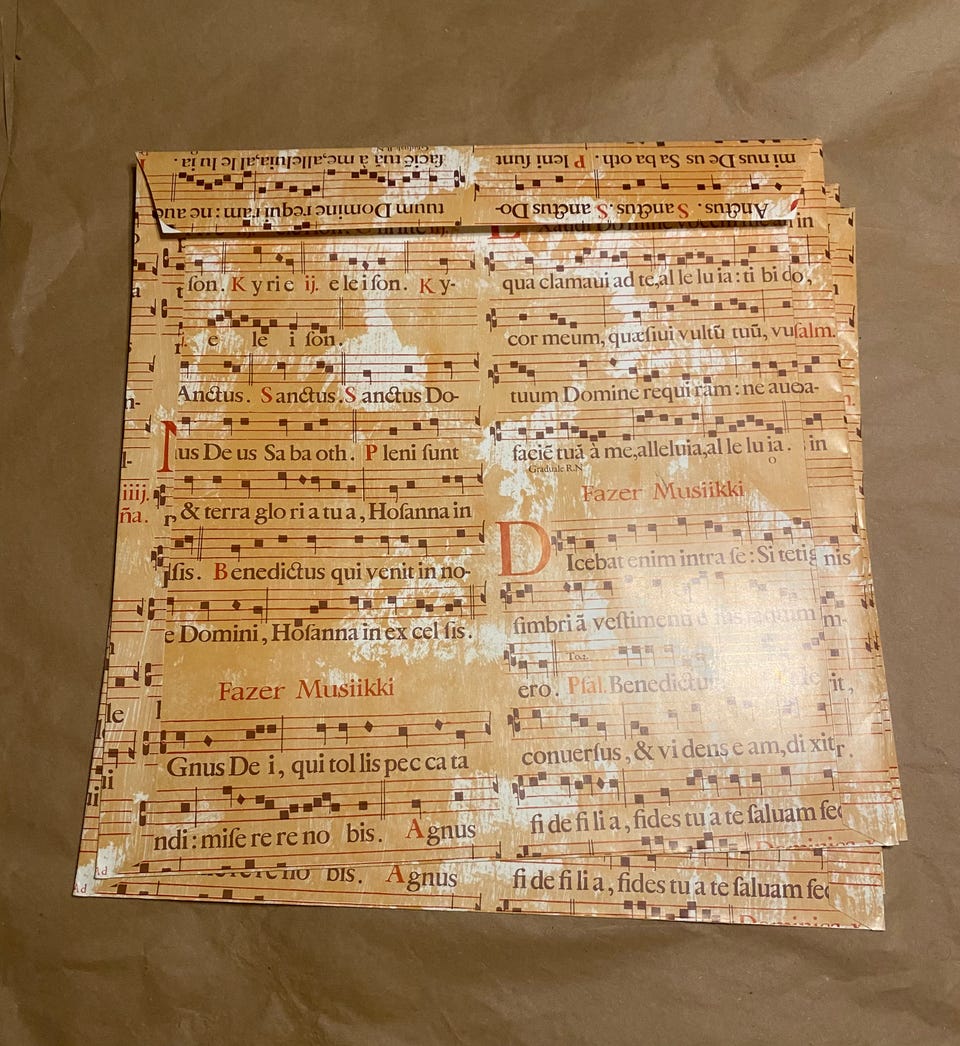 faciē tuā à me,alleluia,al le lu ia.
tuum Domine requi ram : ne aue
mi nus De us Sa ba oth. P leni ſunt
Anctus. S anctus. S anctus Do-
ſon. K y ri e ij. e le i ſon. K y-
e le i ſon.
Anctus. S anctus. S anctus Do-
us De us Sa ba oth. P leni ſunt
& terra glo ri a tu a, Hoſanna in
ſis. B enedictus qui venit in no-
e Domini, Hoſanna in ex cel ſis.
Fazer Musiikki
Gnus De i, qui tol lis pec ca ta
ndi: miſe re re no bis. A gnus
qua clamaui ad te,al le lu ia : ti bi
cor meum, quæſiui vultū tuū, vu
tuum Domine requi ram : ne aue
faciē tuā à me,alleluia,al le lu ia. in
Graduale R.N
Fazer Musiikki
D Icebat enim intra ſe : Si tetig nis
fimbri ā veſtimenti
To.2.
ero. Pſal. Benedictu
conuerſus, & vi dens e am, di xit
fi de fi li a, fides tu a te ſaluam fec
iiij.
ña.
le
li
bis. A gnus
fi de fi li a, fides tu a te ſaluam fec
Dominica
Ad